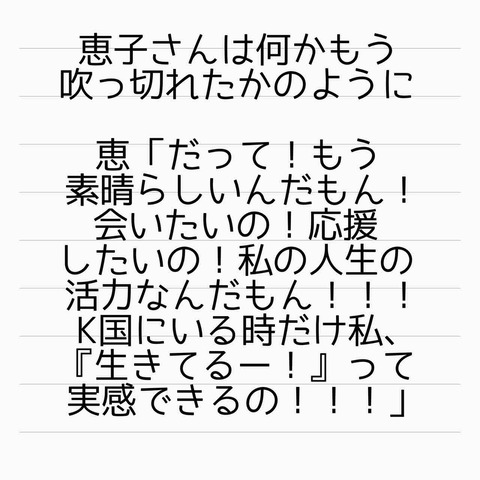 恵子さんは何かもう
吹っ切れたかのように
恵「だって！もう
素晴らしいんだもん！
会いたいの！応援
したいの！私の人生の
活力なんだもん！！！
K国にいる時だけ私、
『生きてるー！』って
実感できるの！！！」